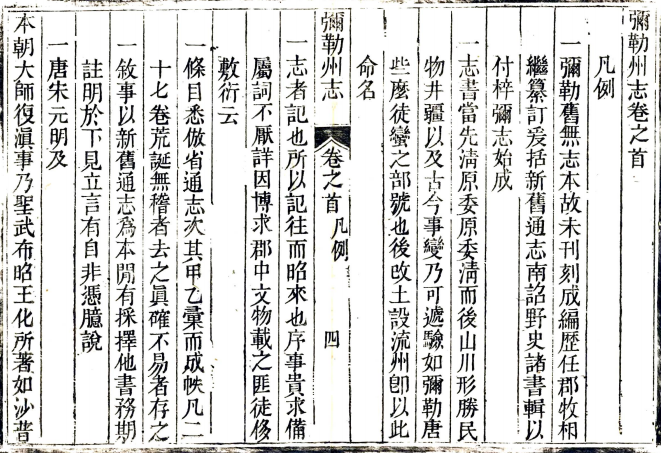 彌勒州志卷之首
凡例
一彌勒舊無志本故未刊刻成編歷任郡牧相
繼纂訂爰括新舊通志南詔野史諸書輯以
付梓彌志始成
一志書當先淸原委原委淸而後山川形勝民
物井疆以及古今事變乃可遞驗如彌勒唐
些麼徒蠻之部號也後攺土設流州卽以此
命名
彌勒州志
卷之首 凡例
四
一志者記也所以記往而昭來也序事貴求備
屬詞不厭詳因博求郡中文物載之匪徒侈
敷衍云
一條目悉倣省通志次其甲乙彙而成帙凡二
十七卷荒誕無稽者去之眞確不易者存之
一敘事以新舊通志爲本閒有採擇他書務期
註明於下見立言有自非憑臆說
一唐宋元明及
本朝大師復滇事乃聖武布昭王化所著如沙普